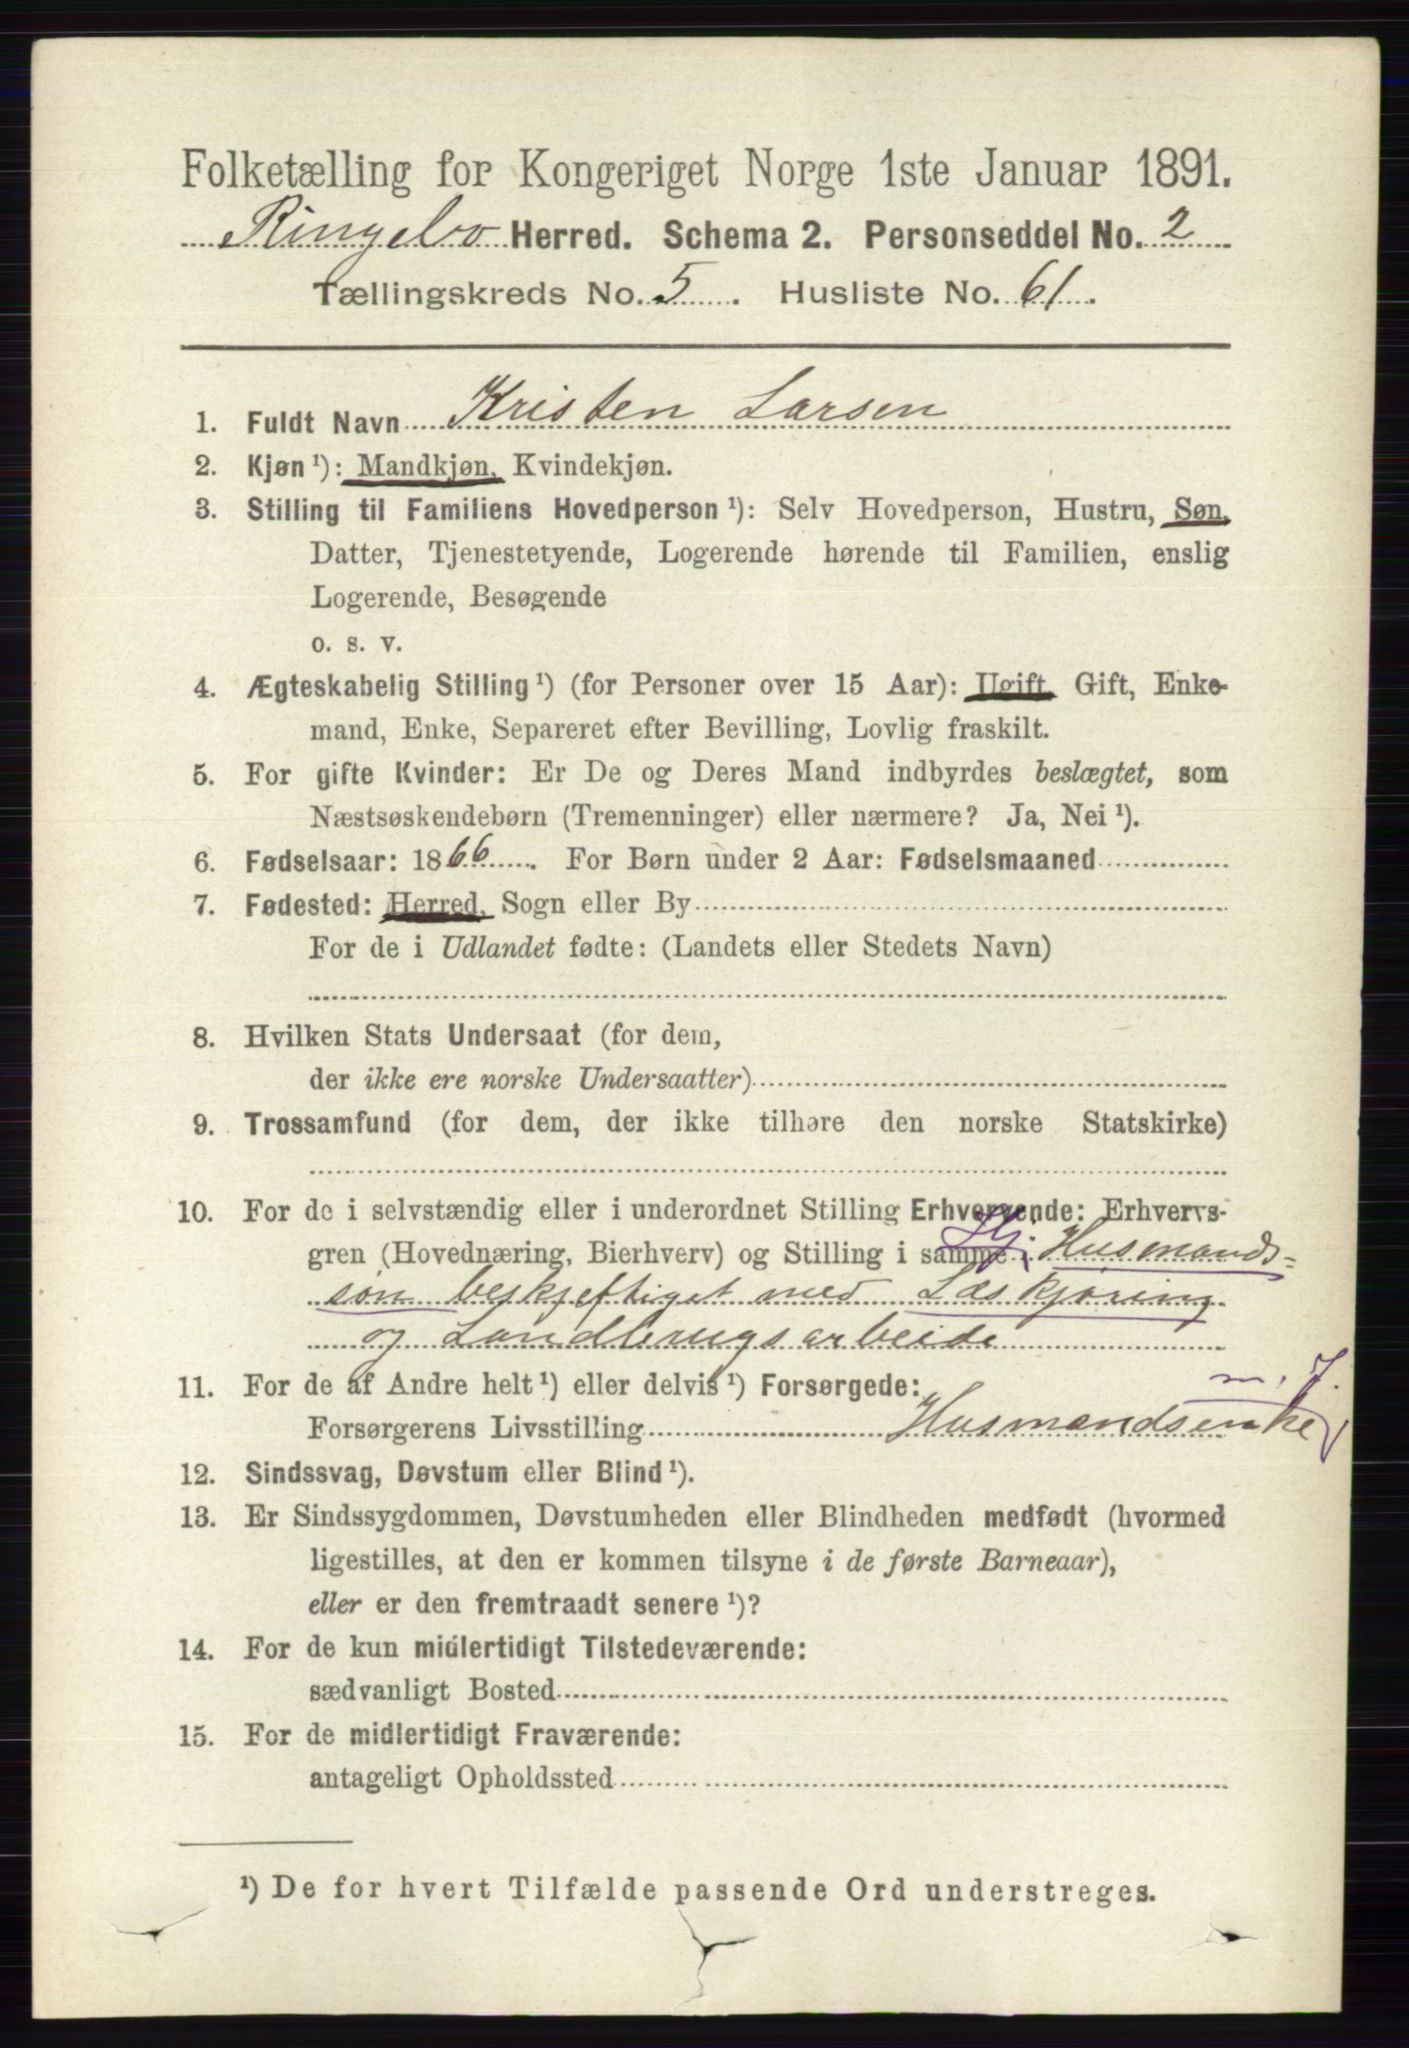 Folketælling for Kongeriget Norge 1ste Januar 1891.
Ringebo Herred. Schema 2. Personseddel No. 2
Tællingskreds No. 5. Husliste No. 61.
1. Fuldt Navn Kristen Larsen
2. Kjøn¹): Mandkjøn, Kvindekjøn.
3. Stilling til Familiens Hovedperson¹): Selv Hovedperson, Hustru, Søn,
Datter, Tjenestetyende, Logerende hørende til Familien, enslig
Logerende, Besøgende
o. s. v.
4. Ægteskabelig Stilling¹) (for Personer over 15 Aar): Ugift, Gift, Enke-
mand, Enke, Separeret efter Bevilling, Lovlig fraskilt.
5. For gifte Kvinder: Er De og Deres Mand indbyrdes beslægtet, som
Næstsøskendebørn (Tremenninger) eller nærmere? Ja, Nei¹).
6. Fødselsaar: 1866. For Børn under 2 Aar: Fødselsmaaned
7. Fødested: Herred, Sogn eller By
For de i Udlandet fødte: (Landets eller Stedets Navn)
8. Hvilken Stats Undersaat (for dem,
der ikke ere norske Undersaatter)
9. Trossamfund (for dem, der ikke tilhøre den norske Statskirke)
10. For de i selvstændig eller i underordnet Stilling Erhvervende: Erhvervs-
gren (Hovednæring, Bierhverv) og Stilling i samme Husmands-
søn beskjeftiget med Læskjøring
og Landbrugsarbeide
11. For de af Andre helt¹) eller delvis¹) Forsørgede:
m. J.
Forsørgerens Livsstilling Husmandsenke
12. Sindssvag, Døvstum eller Blind¹).
13. Er Sindssygdommen, Døvstumheden eller Blindheden medfødt (hvormed
ligestilles, at den er kommen tilsyne i de første Barneaar),
eller er den fremtraadt senere¹)?
14. For de kun midlertidigt Tilstedeværende:
sædvanligt Bosted
15. For de midlertidigt Fraværende:
antageligt Opholdssted
¹) De for hvert Tilfælde passende Ord understreges.